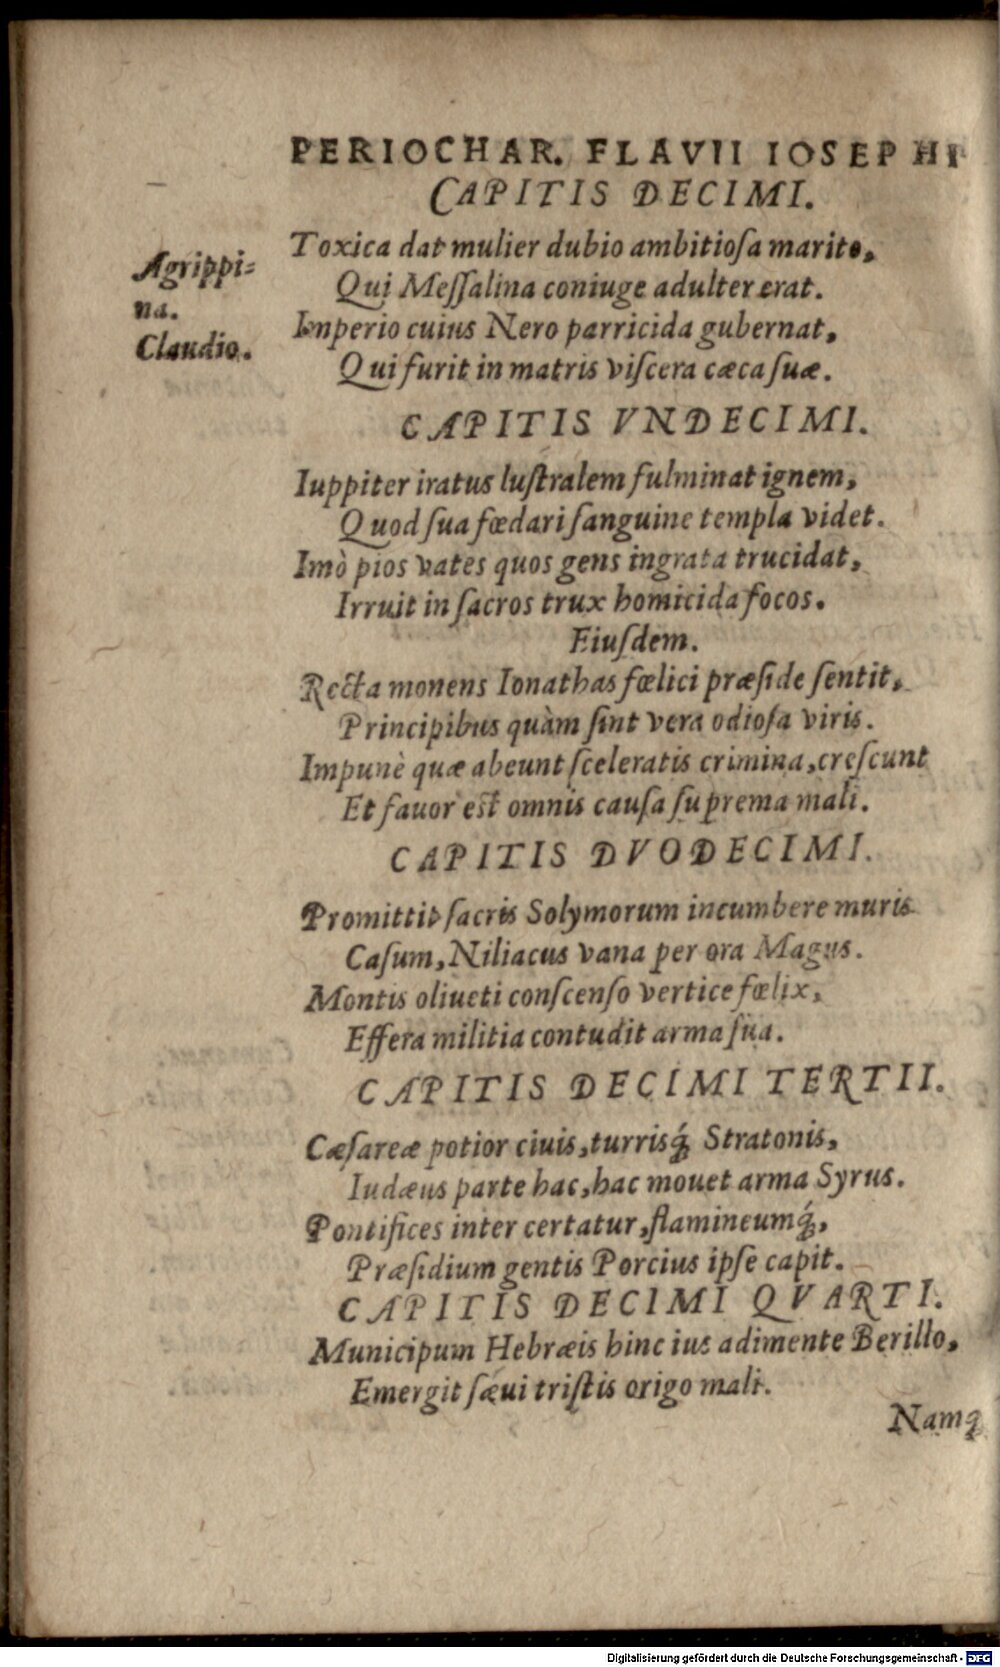 PERIOCHAR. FLAVII IOSEPHI
CAPITIS DECIMI.
Agrippi=
na.
Claudio.
Toxica dat mulier dubio ambitioſa marito,
Qui Meſſalina coniuge adulter erat.
Imperio cuius Nero parricida gubernat,
Qui furit in matris viſcera cæca ſuæ.
CAPITIS VNDECIMI.
Iuppiter iratus luſtralem fulminat ignem,
Quod ſua fœdari ſanguine templa videt.
Imò pios vates quos gens ingrata trucidat,
Irruit in ſacros trux homicida focos.
Eiuſdem.
Recta monens Ionathas fœlici præſide ſentit,
Principibus quàm ſint vera odioſa viris.
Impunè quæ abeunt ſceleratis crimina, creſcunt
Et fauor eſt omnis cauſa ſuprema mali.
CAPITIS DVODECIMI.
Promittit ſacris Solymorum incumbere muris
Caſum, Niliacus vana per ora Magus.
Montis oliueti conſcenſo vertice fœlix,
Effera militia contudit arma ſua.
CAPITIS DECIMI TERTII.
Cæſareæ potior ciuis, turrisq́; Stratonis,
Iudæus parte hac, hac mouet arma Syrus.
Pontifices inter certatur, flamineumq́;,
Præſidium gentis Porcius ipſe capit.
CAPITIS DECIMI QVARTI.
Municipum Hebræis hinc ius adimente Berillo,
Emergit ſæui triſtis origo mali.
Namq;
Digitalisierung gefördert durch die Deutsche Forschungsgemeinschaft - DFG